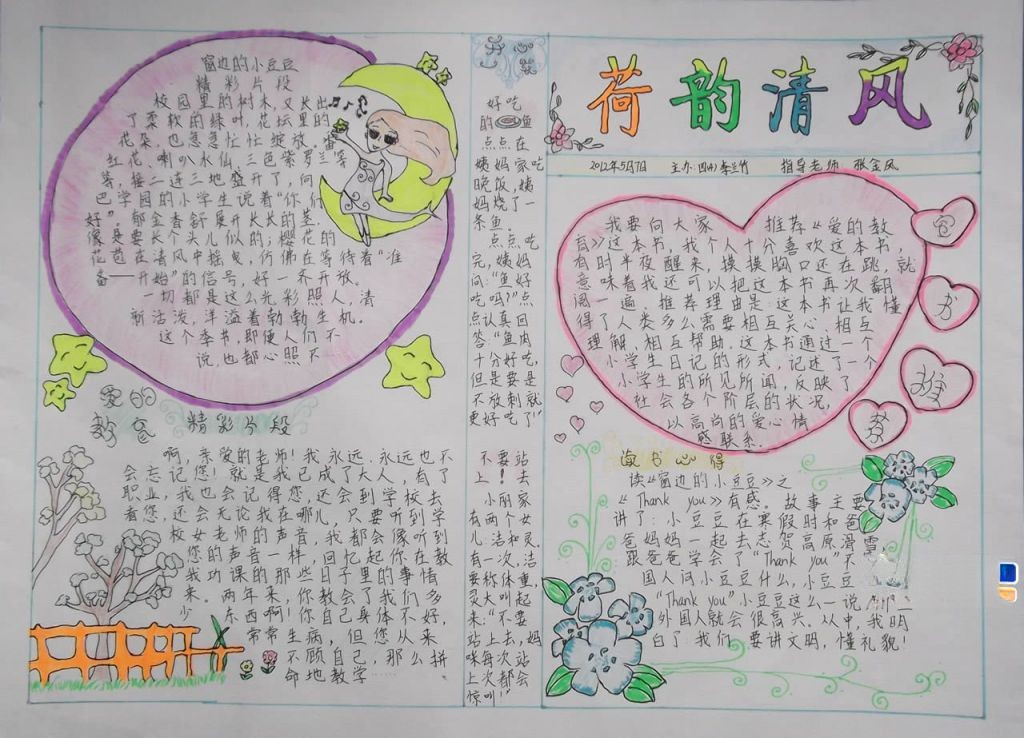 荷韵清风
2012年5月7日 主办:四(4)李兰竹 指导老师 张金凤
窗边的小豆豆
精彩片段
校园里的树木,又长出
了柔软的绿叶,花坛里的
花朵,也急急忙忙绽放,番
红花、喇叭水仙、三色紫罗兰等
等,接二连三地盛开了,向
巴学园的小学生说着“你们
好”。郁金香舒展开长长的茎,
像是要长个头儿似的;樱花的
花苞在清风中摇曳,仿佛在等待着“准
备——开始”的信号,好一齐开放。
一切都是这么光彩照人,清
新活泼,洋溢着勃勃生机。
这个季节,即使人们不
说,也都心照不
爱的
教
精彩片段
啊,亲爱的老师!我永远、永远也不
会忘记您!就是我已成了大人,有了
职业,我也会记得您,还会到学校去
看您,还会无论我在哪儿,只要听到学
校女老师的声音,我都会像听到
您的声音一样,回忆起你在教
我功课的那些日子里的事情
来。两年来,你教会了我们多
少东西啊!你自己身体不好,
常常生病,但您从来
不顾自己,那么拼
命地教学……
开心
好吃
的鱼
点点在
姨妈家吃
晚饭,姨
妈烧了一
条鱼。
点点吃
完,姨妈
问:“鱼好
吃吗?”点
点认真回
答“鱼肉
十分好吃,
但是要是
不放刺就
更好吃了!”
不要站
上!去
小丽家
有两个女
儿:洁和灵.
有一次,洁
要称体重,
灵大叫起
来:“不要
站上去,妈
咪每次站
上次都会
惊叫!”
我要向大家推荐《爱的教
育》这本书,我个人十分喜欢这本书,
有时半夜醒来,摸摸胸口还在跳,就
意味着我还可以把这本书再次翻
阅一遍。推荐理由是:这本书让我懂
得了人类多么需要相互关心、相互
理解,相互帮助。这本书通过一个
小学生日记的形式,记述了一个
小学生的所见所闻,反映了
社会各个阶层的状况,
以高尚的爱心情
感联系.
读书心得
读《窗边的小豆豆》之
《Thank you》有感。故事主要
讲了:小豆豆在寒假时和爸
爸妈妈一起去志贺高原滑雪,
跟爸爸学会了“Thank you”不
国人问小豆豆什么,小豆豆
“Thank you”小豆豆这么一说,
外国人就会很高兴。从中,我明
白了我们要讲文明,懂礼貌!